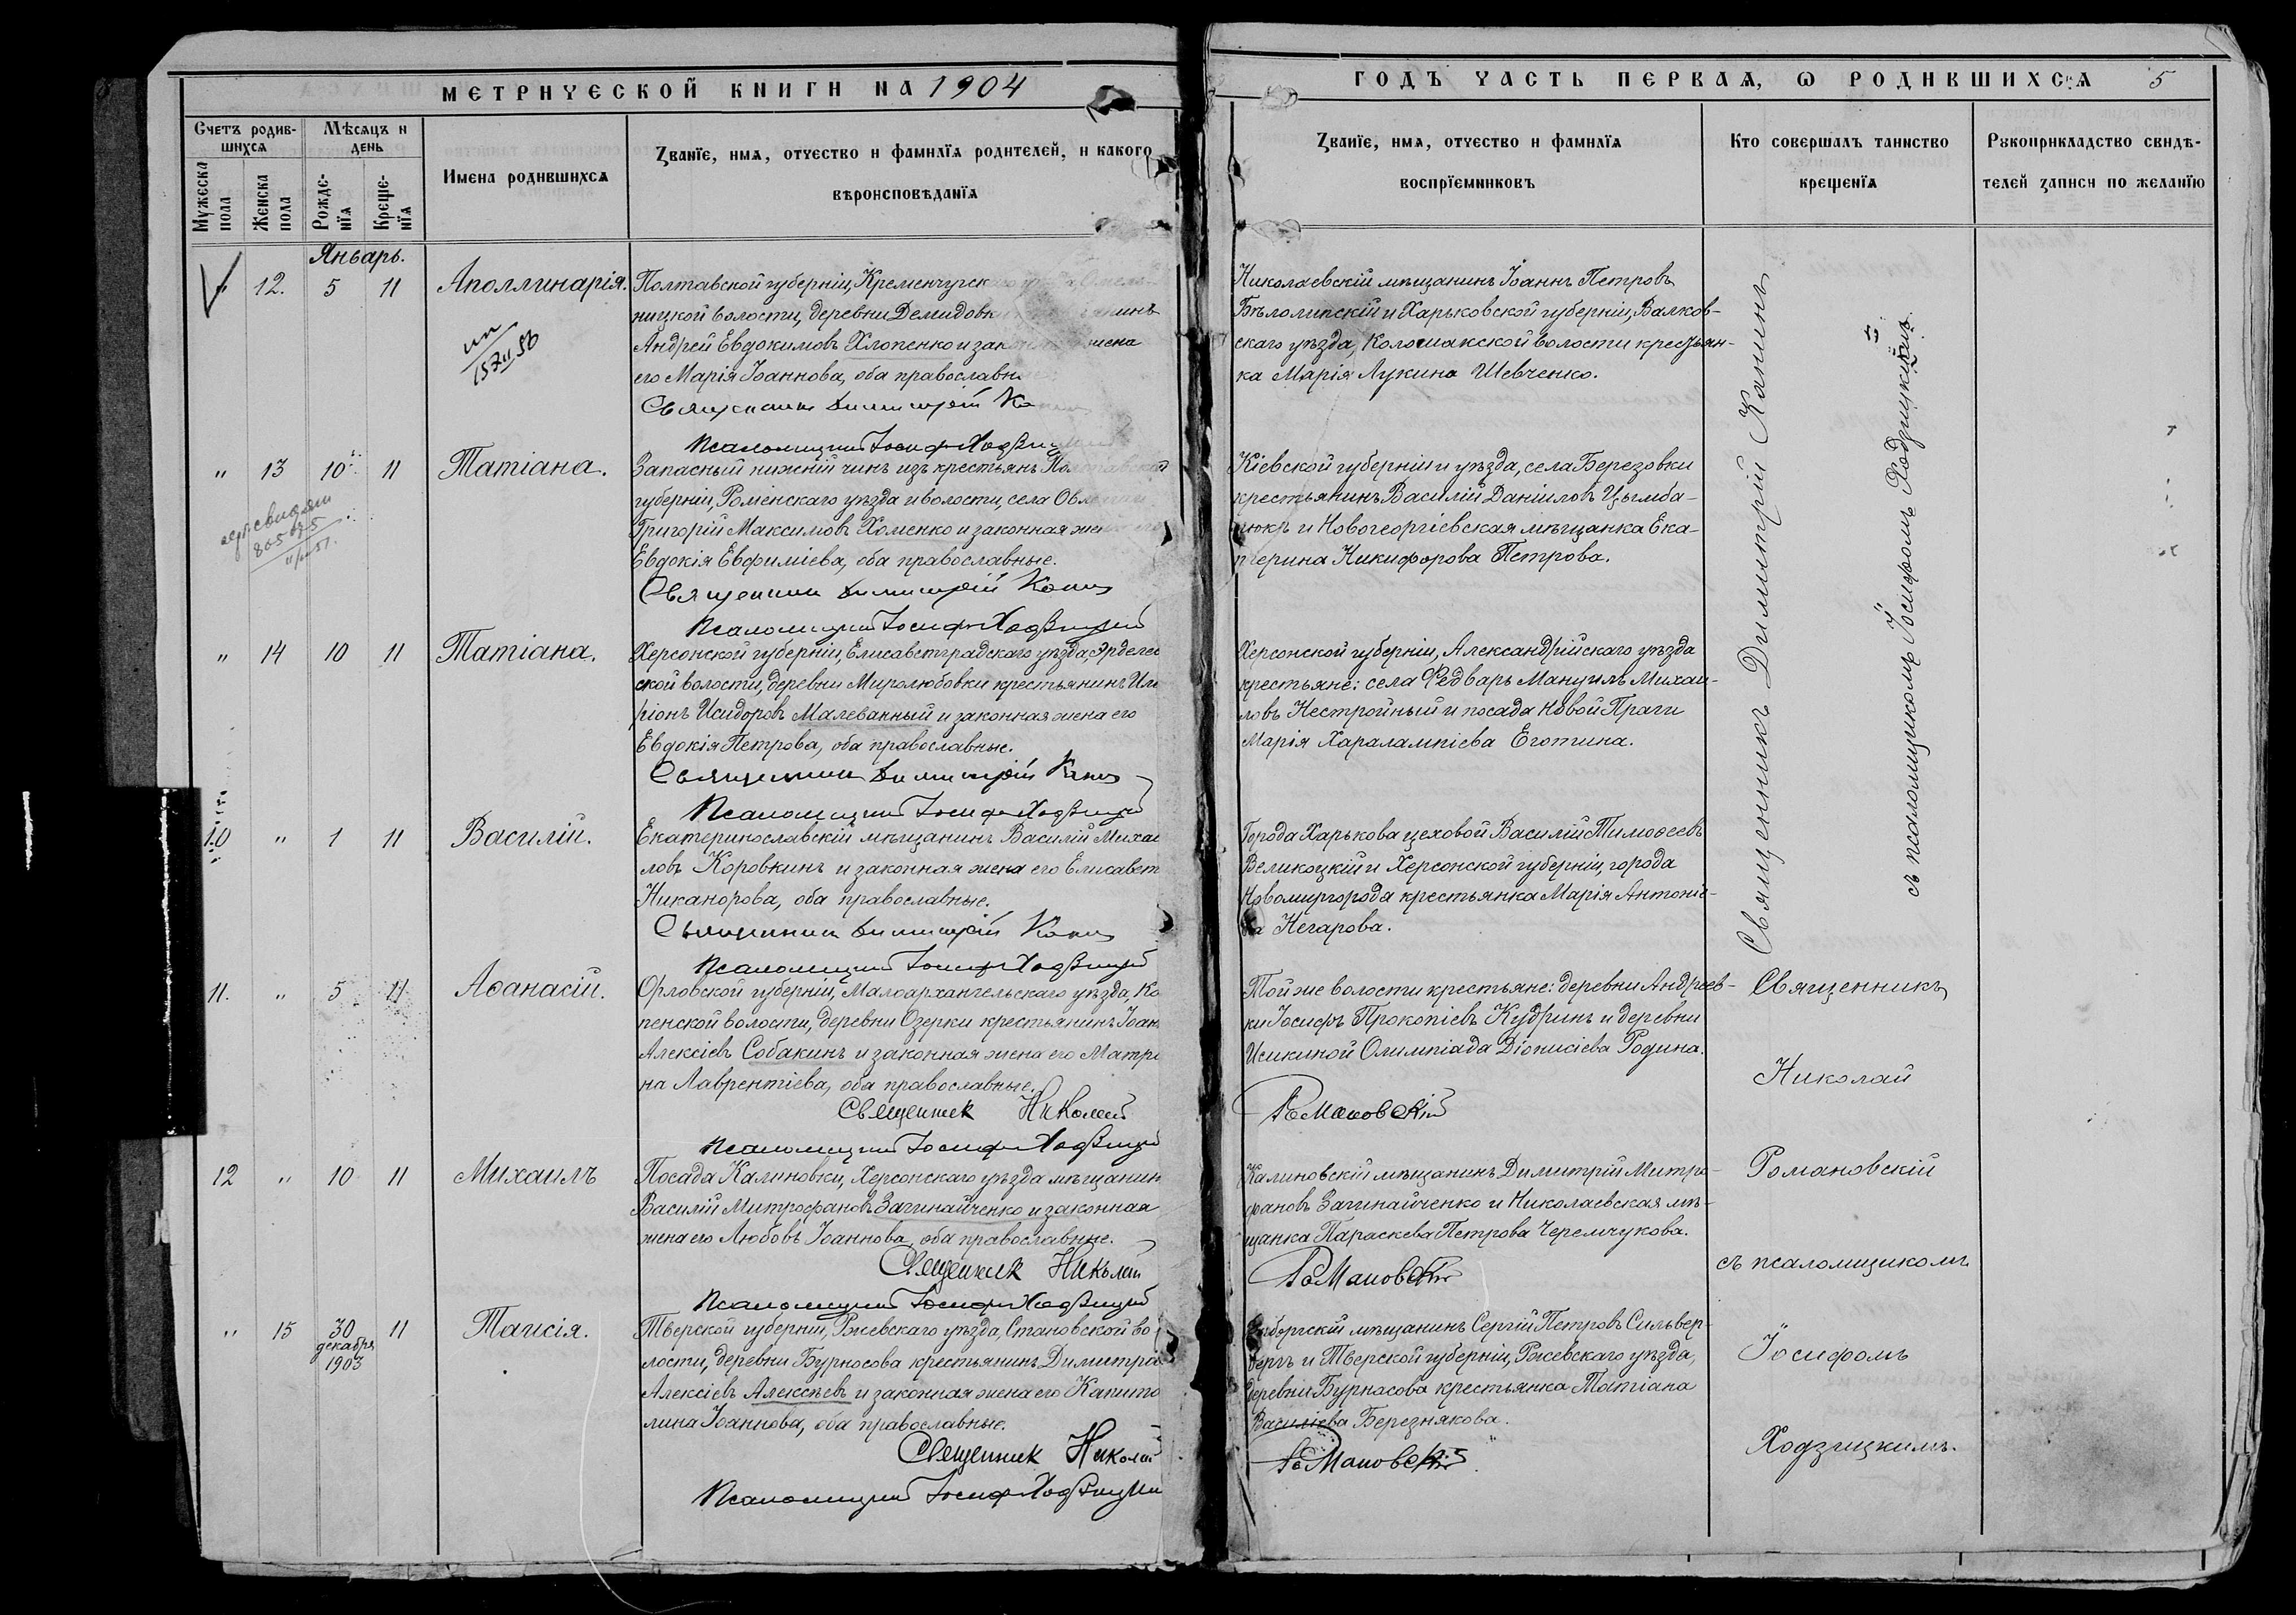 МЕТРИЧЕСКОЙ КНИГИ НА 1904
Счетъ родив-
шихся
Мѣсяцъ и
день
Мужеска
пола
Женска
пола
Рожде-
нїя
Креще-
нїя
Имена родившихся
Званїе, имя, отчество и фамилїя родителей, и какого
вѣроисповѣданїя
Январь.
12. 5 11 Аполлинарія.
Полтавской губерніи, Кременчугск
ницкой волости, деревни Демидовк
Андрей Евдокимовъ Хлопенко и зак жена
его Марія Іоаннова, оба православн
Священникъ Димитрій Ка
Псаломщикъ Іосифъ Ходзицкій
" 13 10 11 Татіана.
Запасный нижній чинъ изъ крестьянъ
губерніи, Роменскаго уѣзда и волости, села
Григорій Максимовъ Хоменко и законная же
Евдокія Евфиміева, оба православные.
Священникъ Димитрій Канинъ
Псаломщикъ Іосифъ Ходзицкій
" 14 10 11 Татіана.
Херсонской губерніи, Елисаветградскаго уѣзда,
ской волости, деревни Миролюбовки крестьянинъ Ила
ріонъ Исидоровъ Малеванный и законная жена его
Евдокія Петрова, оба православные.
Священникъ Димитрій Канинъ
Псаломщикъ Іосифъ Ходзицкій
10 " 1 11 Василій.
Екатеринославскій мѣщанинъ Василій Михаи
ловъ Коровкинъ и законная жена его Елисавет
Никанорова, оба православные.
Священникъ Димитрій Канинъ
Псаломщикъ Іосифъ Ходзицкій
11. " 5 11 Аѳанасій.
Орловской губерніи, Малоархангельскаго уѣзда, Ко
пенской волости, деревни Озерки крестьянинъ Іоан
Алексіевъ Собакинъ и законная жена его Матро
на Лаврентіева, оба православные.
Священник Николай
Псаломщикъ Іосифъ Ходзицкій
12 " 10 11 Михаилъ
Посада Калиновки, Херсонскаго уѣзда мѣщанин
Василій Митрофановъ Загинайченко и законная
жена его Любовь Іоаннова, оба православные.
Священник Николай
Псаломщикъ Іосифъ Ходзицкій
" 15 30 11 Таисія.
декабря
1903
Тверской губерніи, Ржевскаго уѣзда, Становской во
лости, деревни Бурносова крестьянинъ Димитрій
Алексіевъ Алексѣевъ и законная жена его Капито
лина Іоаннова, оба православные.
Священник Николай
Псаломщикъ Іосифъ Ходзицкій
ГОДЪ ЧАСТЬ ПЕРВАЯ, Ѡ РОДИВШИХСЯ 5
Званїе, имя, отчество и фамилїя
воспрїемниковъ
Кто совершалъ таинство
крещенїя
Рукоприкладство свидѣ-
телей записи по желанїю
Николаевскій мѣщанинъ Іоаннъ Петровъ
Бѣлолипскій и Харьковской губерніи, Валков-
скаго уѣзда, Коломакской волости крестьян-
ка Марія Лукина Шевченко.
Кіевской губерніи и уѣзда, села Березовки
крестьянинъ Василій Даніиловъ Цымба-
люкъ и Новогеоргіевская мѣщанка Ека-
терина Никифорова Петрова.
Херсонской губерніи, Александрійскаго уѣзда
крестьяне: села Федваръ Мануилъ Михаи-
ловъ Нестройный и посада Новой Праги
Марія Харалампіева Еготина.
Города Харькова цеховой Василій Тимоѳеевъ
Великоцкій и Херсонской губерніи, города
Новомиргорода крестьянка Марія Антоніе-
ва Негарова.
Священникъ Димитрій Канинъ
съ псаломщикомъ Іосифомъ Ходзицкимъ.
Той же волости крестьяне: деревни Андреев-
ки Іосифъ Прокопіевъ Кудринъ и деревни
Исикиной Олимпіада Діонисіева Родина.
Романовскій
Калиновскій мѣщанинъ Димитрій Митро-
фановъ Загинайченко и Николаевская мѣ-
щанка Параскева Петрова Черемчукова.
Романовскій
Выборгскій мѣщанинъ Сергій Петровъ Сильвер-
бергъ и Тверской губерніи, Ржевскаго уѣзда,
деревни Бурнасова крестьянка Татіана
Василіева Березнякова.
Романовскій
Священникъ
Николай
Романовскій
съ псаломщикомъ
Іосифомъ
Ходзицкимъ.